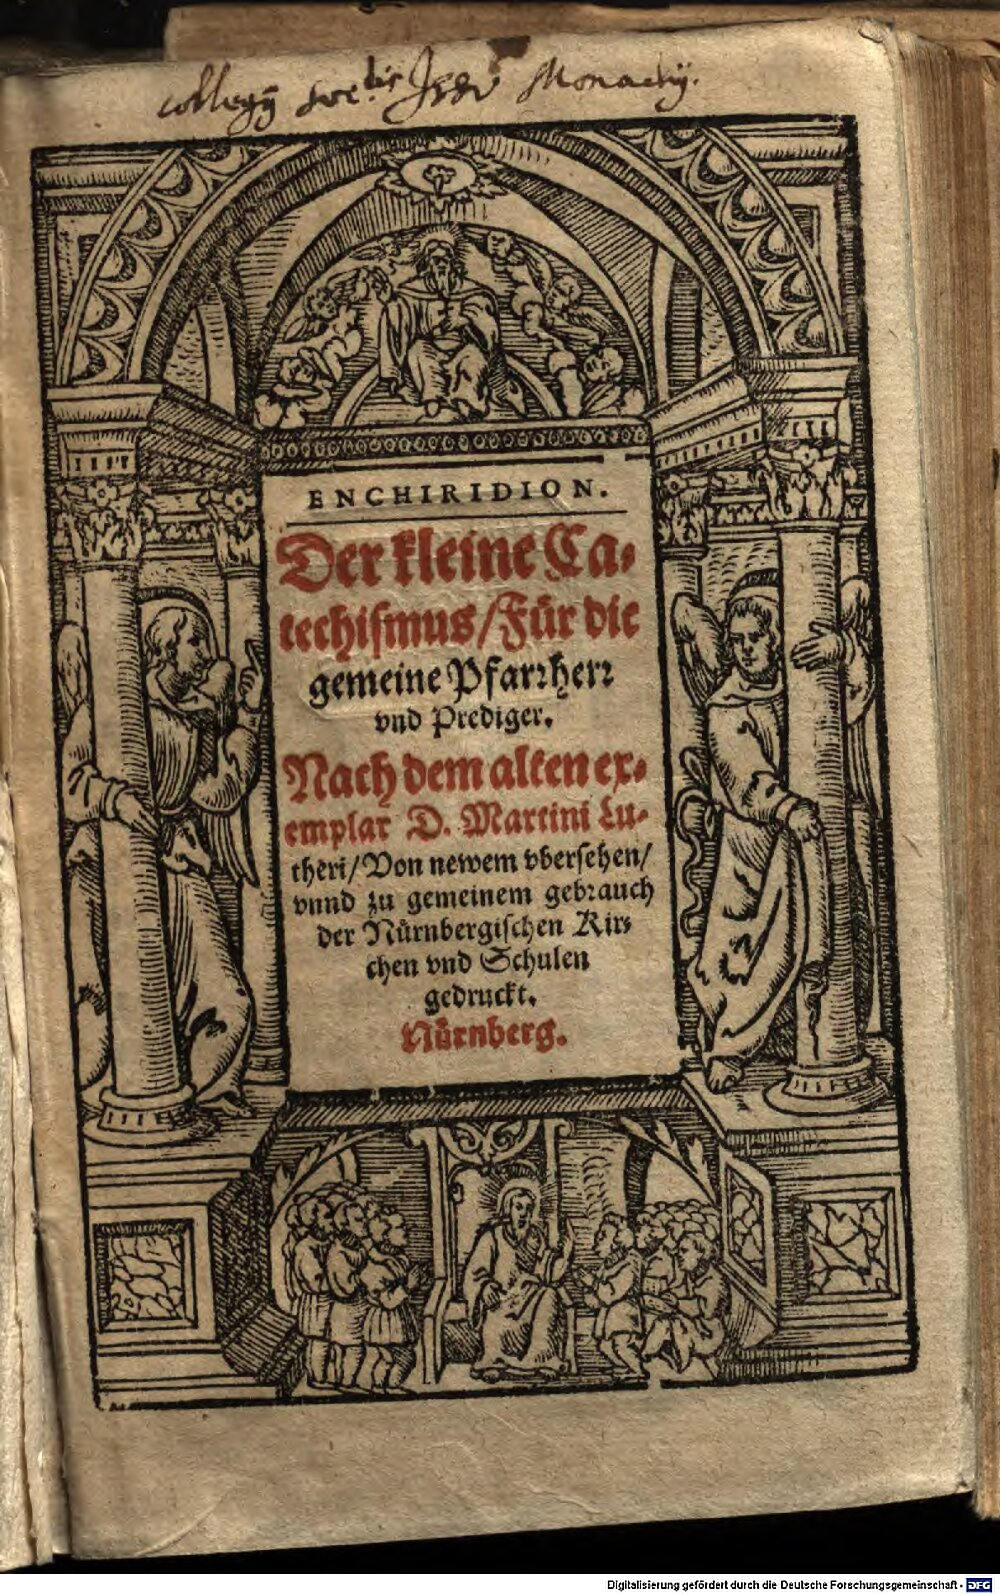 Collegij Soc.tis Jesu Monachij.
ENCHIRIDION.
Der kleine Ca-
techismus/Für die
gemeine Pfarrherr
vnd Prediger.
Nach dem alten ex-
emplar D. Martini Lu-
theri/Von newem vbersehen/
vnnd zu gemeinem gebrauch
der Nürnbergischen Kir-
chen vnd Schulen
gedruckt.
Nürnberg.
Digitalisierung gefördert durch die Deutsche Forschungsgemeinschaft - DFG